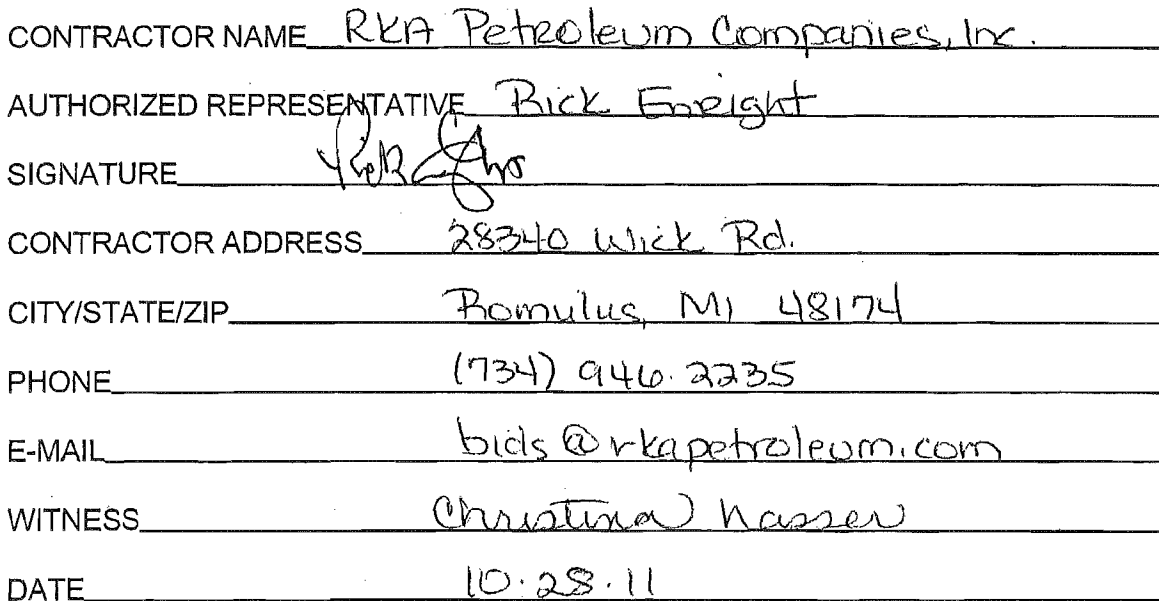 CONTRACTOR NAME RKA Petroleum Companies, Inc.
AUTHORIZED REPRESENTATIVE Rick Enright
SIGNATURE
CONTRACTOR ADDRESS 28340 Wick Rd.
CITY/STATE/ZIP Romulus, MI 48174
PHONE (734) 946.2235
E-MAIL bids@rkapetroleum.com
WITNESS Christina Nasser
DATE 10.28.11